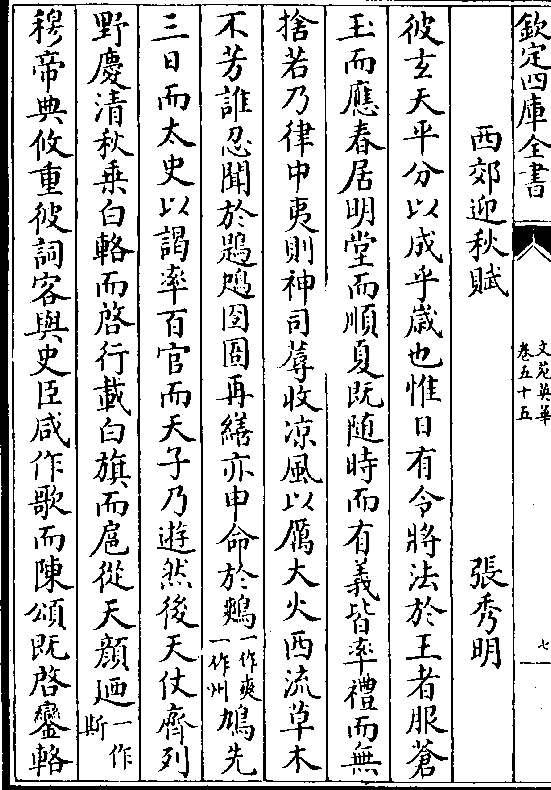 欽定四庫全書
文苑英華
卷五十五
七
西郊迎秋賦 張秀明
彼玄天平分以成乎歲也惟日有令將法於王者服蒼
玉而應春居明堂而順夏既随時而有義皆率禮而無
捨若乃律中夷則神司蓐收凉風以厲大火西流草木
不芳誰忍聞於鶗鴂囹圄再繕亦申命於鷞一作爽一作州鳩先
三日而太史以謁率百官而天子乃遊然後天仗齊列
野慶清秋乗白輅而啓行載白旗而扈從天顔廼一作斯
穆帝典攸重彼詞客與史臣咸作歌而陳頌既啓鑾輅